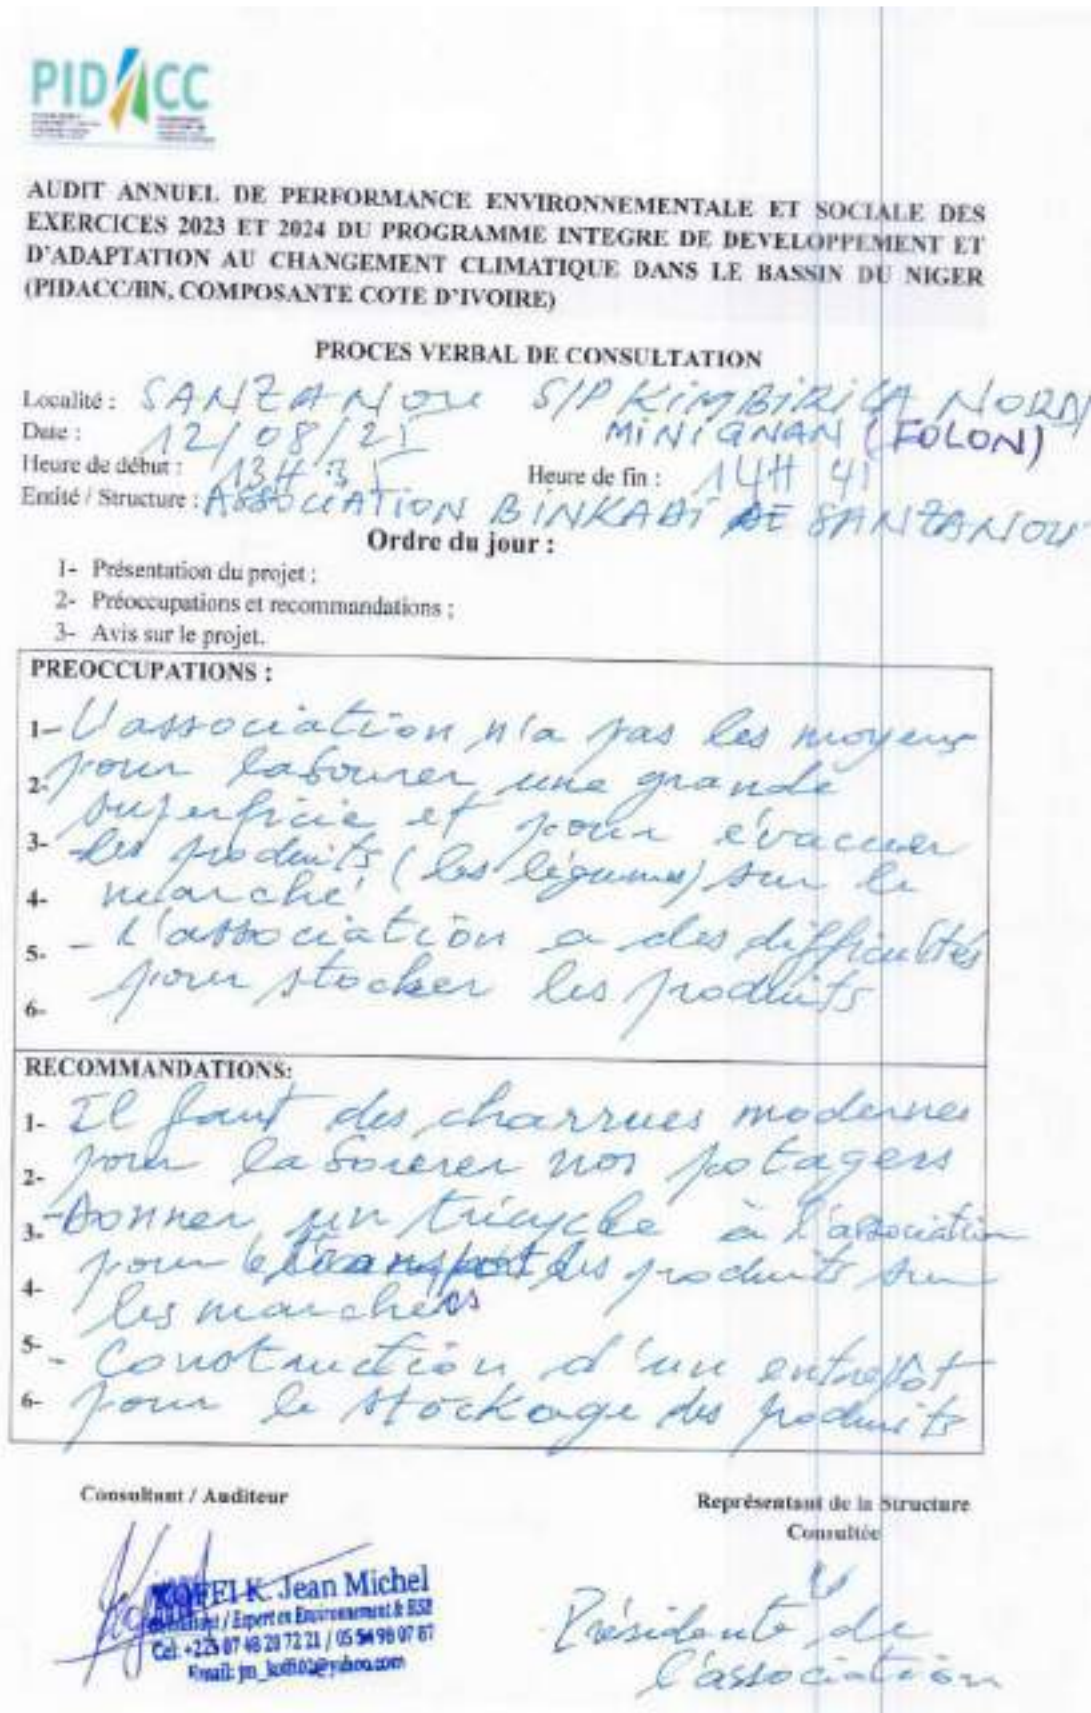 PIDACC
AUDIT ANNUEL DE PERFORMANCE ENVIRONNEMENTALE ET SOCIALE DES
EXERCICES 2023 ET 2024 DU PROGRAMME INTEGRE DE DEVELOPPEMENT ET
D'ADAPTATION AU CHANGEMENT CLIMATIQUE DANS LE BASSIN DU NIGER
(PIDACC/BN, COMPOSANTE COTE D'IVOIRE)
PROCES VERBAL DE CONSULTATION
Localité : SANZANOU S/P KIMBIRILA NORD/
MINIGNAN (FOLON)
Date : 12/08/25
Heure de début : 13H 35 Heure de fin : 14H 41
Entité / Structure : ASSOCIATION BINKADI DE SANZANOU
Ordre du jour :
1- Présentation du projet ;
2- Préoccupations et recommandations ;
3- Avis sur le projet.
PREOCCUPATIONS :
1- L'association n'a pas les moyens
2- pour labourer une grande
superficie et pour évacuer
3- les produits (les légumes) sur le
4- marché
5- - L'association a des difficultés
pour stocker les produits
6-
RECOMMANDATIONS:
1- Il faut des charrues modernes
2- pour labourer nos potagers
3- - Donner un tricycle à l'association
pour le transport des produits sur
4- les marchés
5- - Construction d'un entrepôt
6- pour le stockage des produits
Consultant / Auditeur
Représentant de la Structure
Consultée
KOFFI K. Jean Michel
Consultant / Expert en Environnement & RSE
Cel: +225 07 48 28 72 21 / 05 54 98 07 87
Email: jm_koffi02@yahoo.com
Présidente de
l'association